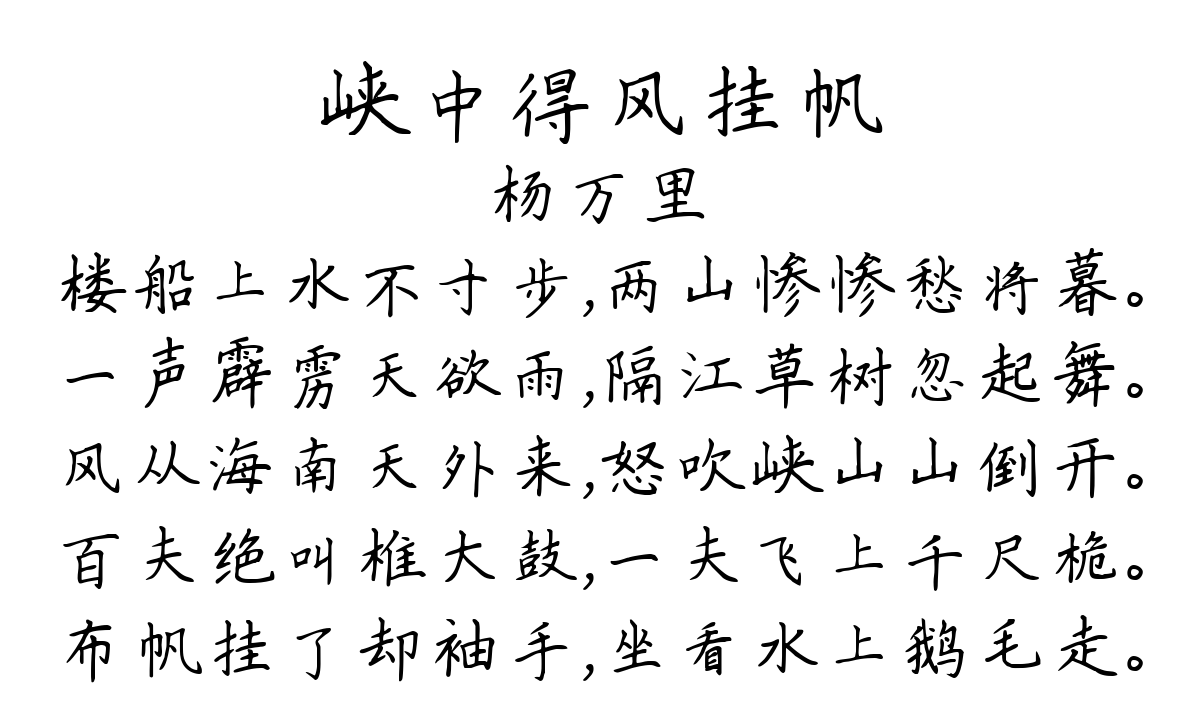 峡中得风挂帆
杨万里
楼船上水不寸步,两山惨惨愁将暮。
一声霹雳天欲雨,隔江草树忽起舞。
风从海南天外来,怒吹峡山山倒开。
百夫绝叫椎大鼓,一夫飞上千尺桅。
布帆挂了却袖手,坐看水上鹅毛走。